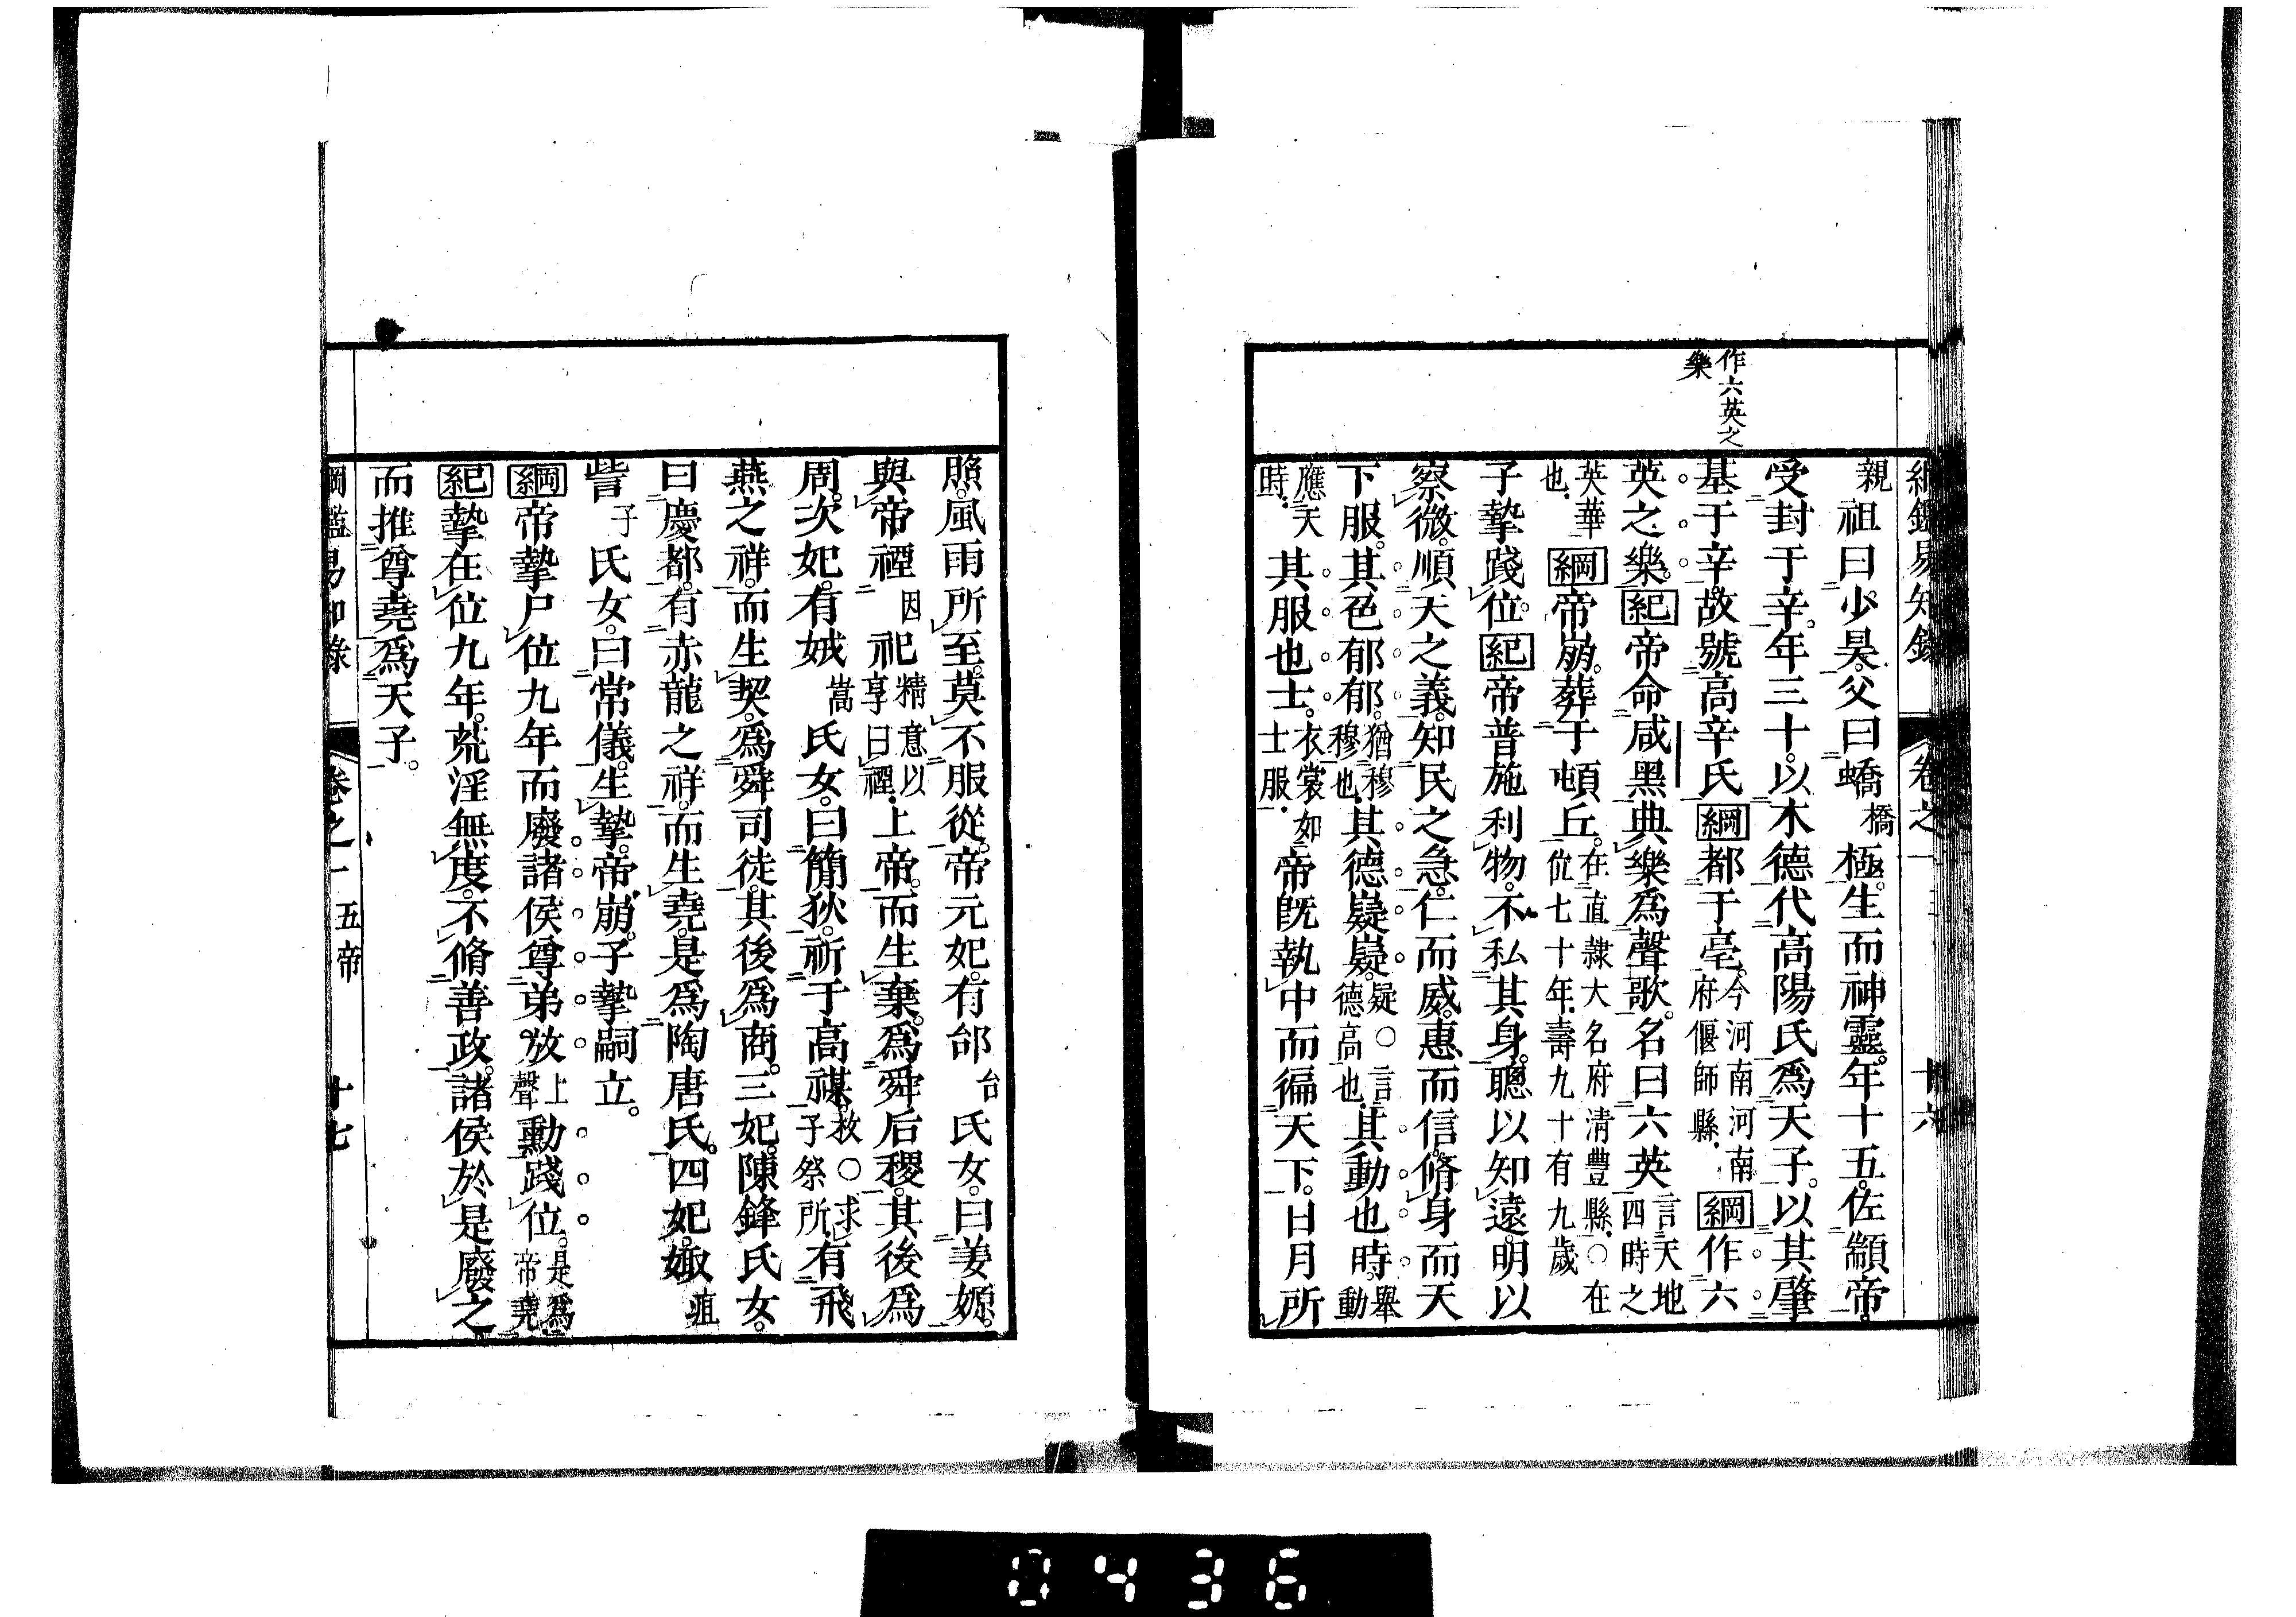 綱鑑易知錄 卷之一 十六
作六英之
樂
親祖曰少昊。父曰蟜橋極。生而神靈。年十五。佐顓帝。
受封于辛。年三十。以木德代高陽氏爲天子。以其肇
基于辛。故號高辛氏綱都于亳。今河南河南府偃師縣。綱作六
英之樂。紀帝命咸黑典樂爲聲歌。名曰六英言天地四時之
英華也。綱帝崩。葬于頓丘。在直隷大名府清豐縣。○在位七十年。壽九十有九歲
子摯踐位。紀帝普施利物。不私其身。聰以知遠。明以
察微。順天之義。知民之急。仁而威。惠而信。脩身而天
下服。其色郁郁。猶穆穆也。其德嶷嶷。疑○言德高也。其動也時。舉動
應天時。其服也士。衣裳如士服。帝旣執中而徧天下。日月所
照。風雨所至。莫不服從。帝元妃。有邰台氏女。曰姜嫄。
與帝禋因祀精意以享曰禋。上帝。而生棄。爲舜后稷。其後爲
周。次妃。有娀嵩氏女。曰簡狄。祈于高禖。枚○求子祭所。有飛
燕之祥。而生契。爲舜司徒。其後爲商。三妃。陳鋒氏女。
曰慶都。有赤龍之祥。而生堯。是爲陶唐氏。四妃。娵疽
訾子氏女。曰常儀。生摯。帝崩。子摯嗣立。
綱帝摯尸位九年而廢諸侯尊弟放上聲勳踐位。是爲帝堯
紀摯在位九年。荒淫無度。不脩善政。諸侯於是廢之
而推尊堯爲天子。
綱鑑易知錄 卷之一 五帝 十七
0436